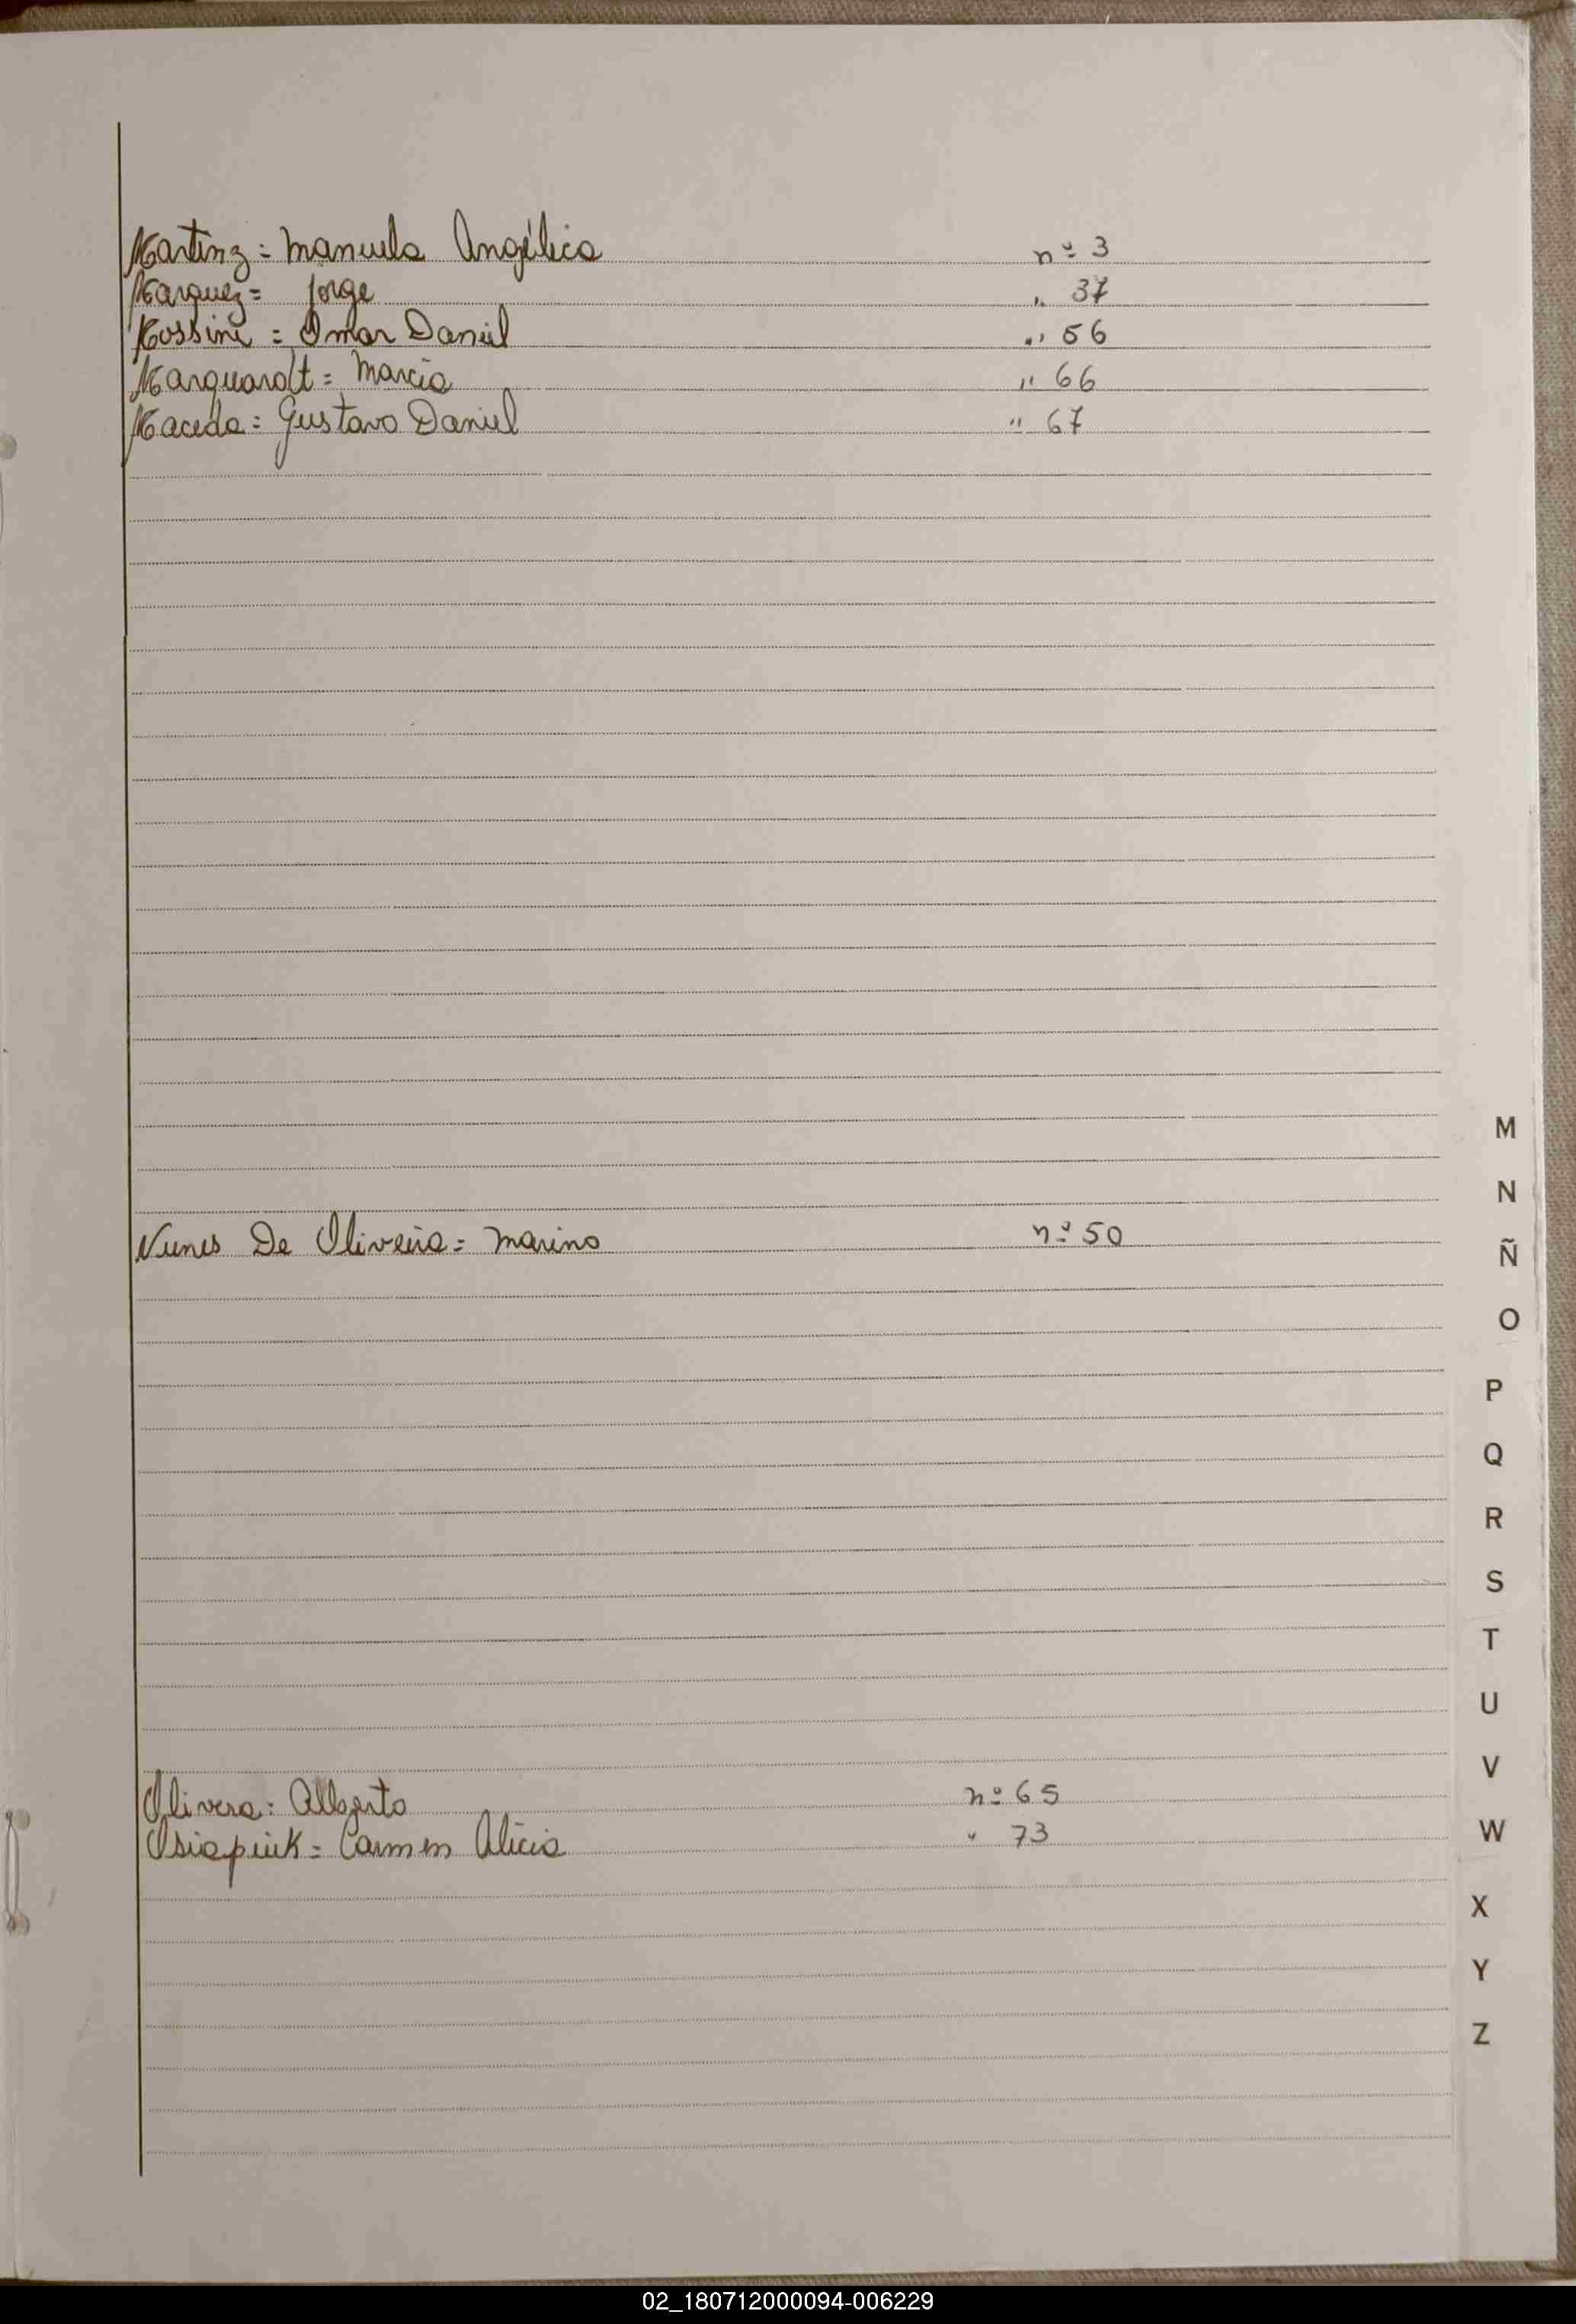 Martinz = Manuela Angélica nº 3
Marquez = Jorge " 37
Mossini = Omar Daniel " 56
Marquardt = Marcia " 66
Maceda = Gustavo Daniel " 67
Nunes De Oliveira = Marino nº 50
Olivera = Alberto nº 65
= Carmen Alicia " 73
M
N
Ñ
O
P
Q
R
S
T
U
V
W
X
Y
Z
02_180712000094-006229